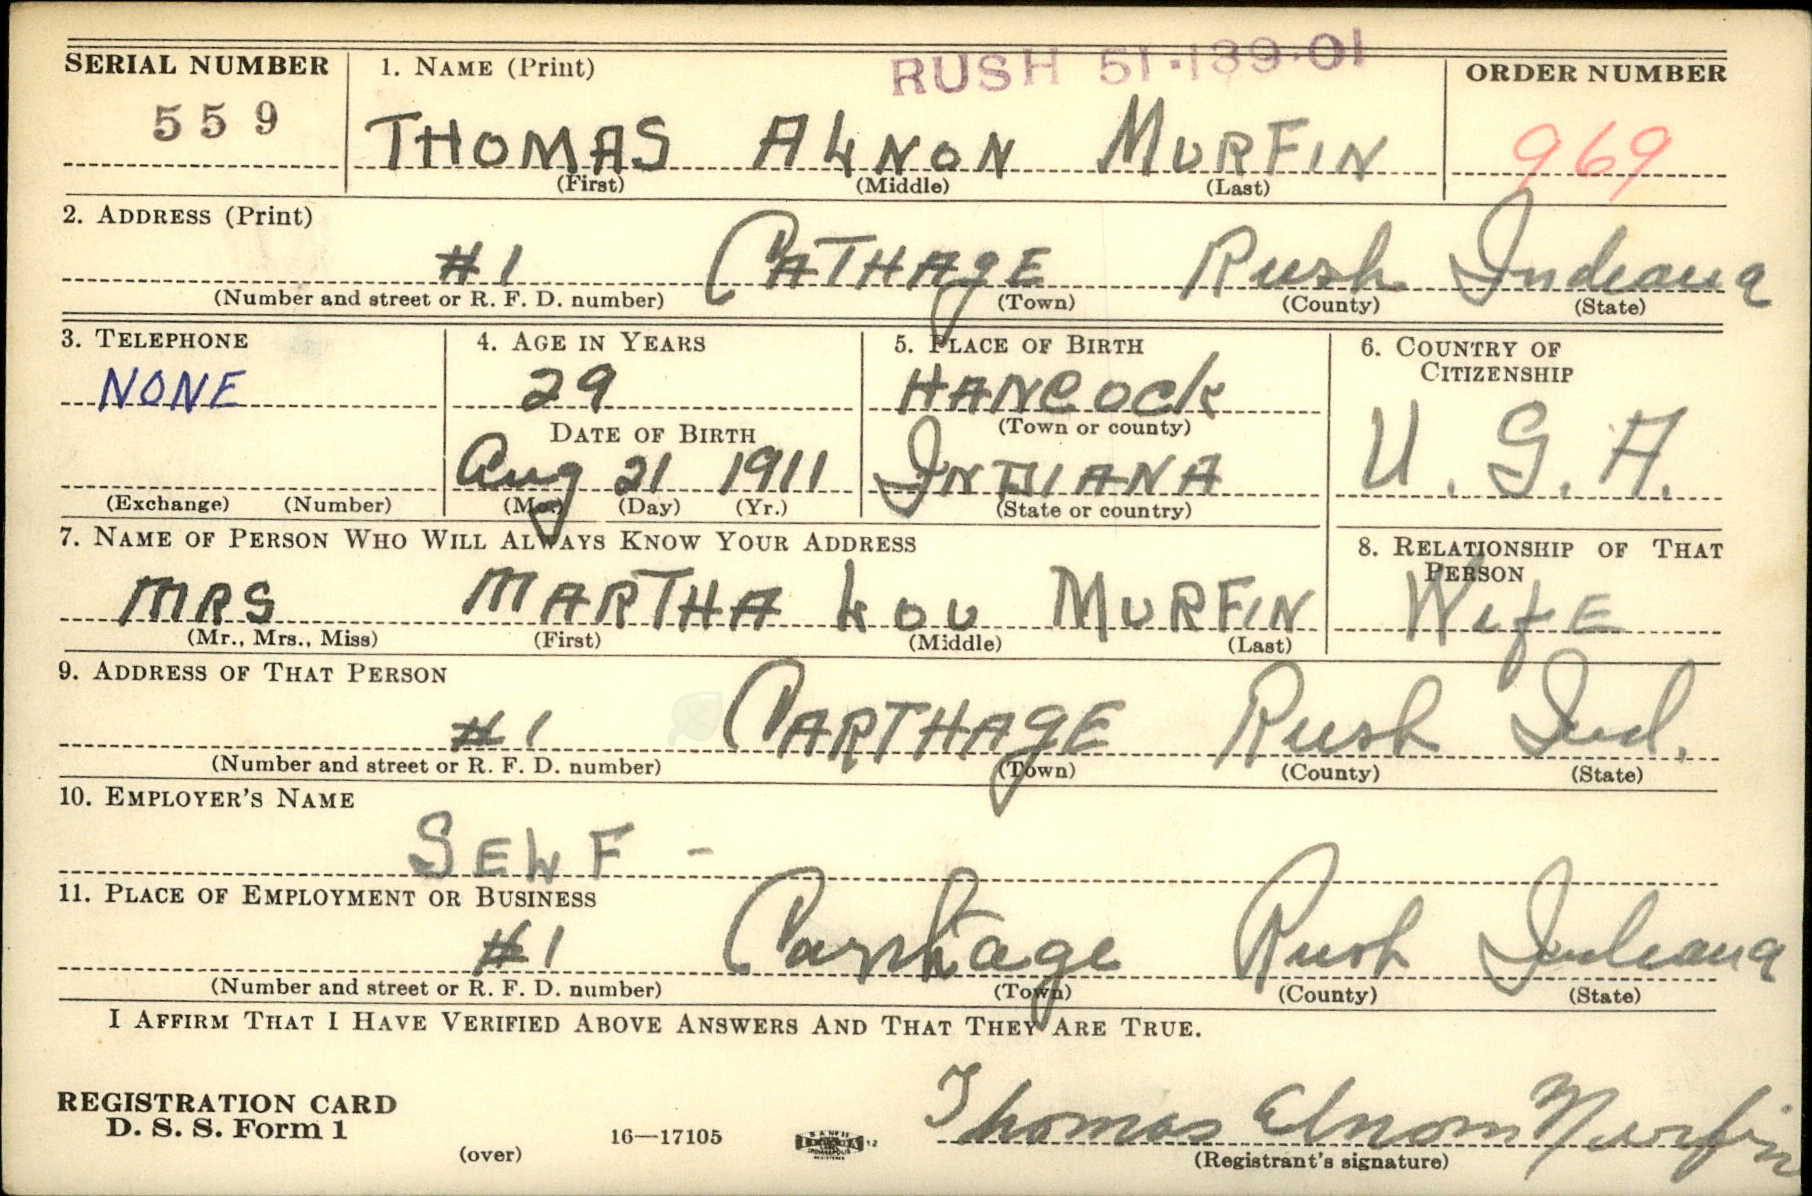 RUSH 51-139-01
SERIAL NUMBER 1. NAME (Print) ORDER NUMBER
559 THOMAS ALNON MURFIN 969
(First) (Middle) (Last)
2. ADDRESS (Print)
#1 CATHAgE Rush Indiana
(Number and street or R. F. D. number) (Town) (County) (State)
3. TELEPHONE 4. AGE IN YEARS 5. PLACE OF BIRTH 6. COUNTRY OF
CITIZENSHIP
NONE 29 HANCOCK U.S.A.
DATE OF BIRTH (Town or county)
Aug 21 1911 INDIANA
(Exchange) (Number) (Mo.) (Day) (Yr.) (State or country)
7. NAME OF PERSON WHO WILL ALWAYS KNOW YOUR ADDRESS 8. RELATIONSHIP OF THAT
PERSON
MRS MARTHA LOU MURFIN WifE
(Mr., Mrs., Miss) (First) (Middle) (Last)
9. ADDRESS OF THAT PERSON
#1 CARTHAgE Rush Ind.
(Number and street or R. F. D. number) (Town) (County) (State)
10. EMPLOYER'S NAME
SELF -
11. PLACE OF EMPLOYMENT OR BUSINESS
#1 Carthage Rush Indiana
(Number and street or R. F. D. number) (Town) (County) (State)
I AFFIRM THAT I HAVE VERIFIED ABOVE ANSWERS AND THAT THEY ARE TRUE.
REGISTRATION CARD
D. S. S. Form 1
(over) 16—17105 Thomas Elnom Murfin
(Registrant's signature)